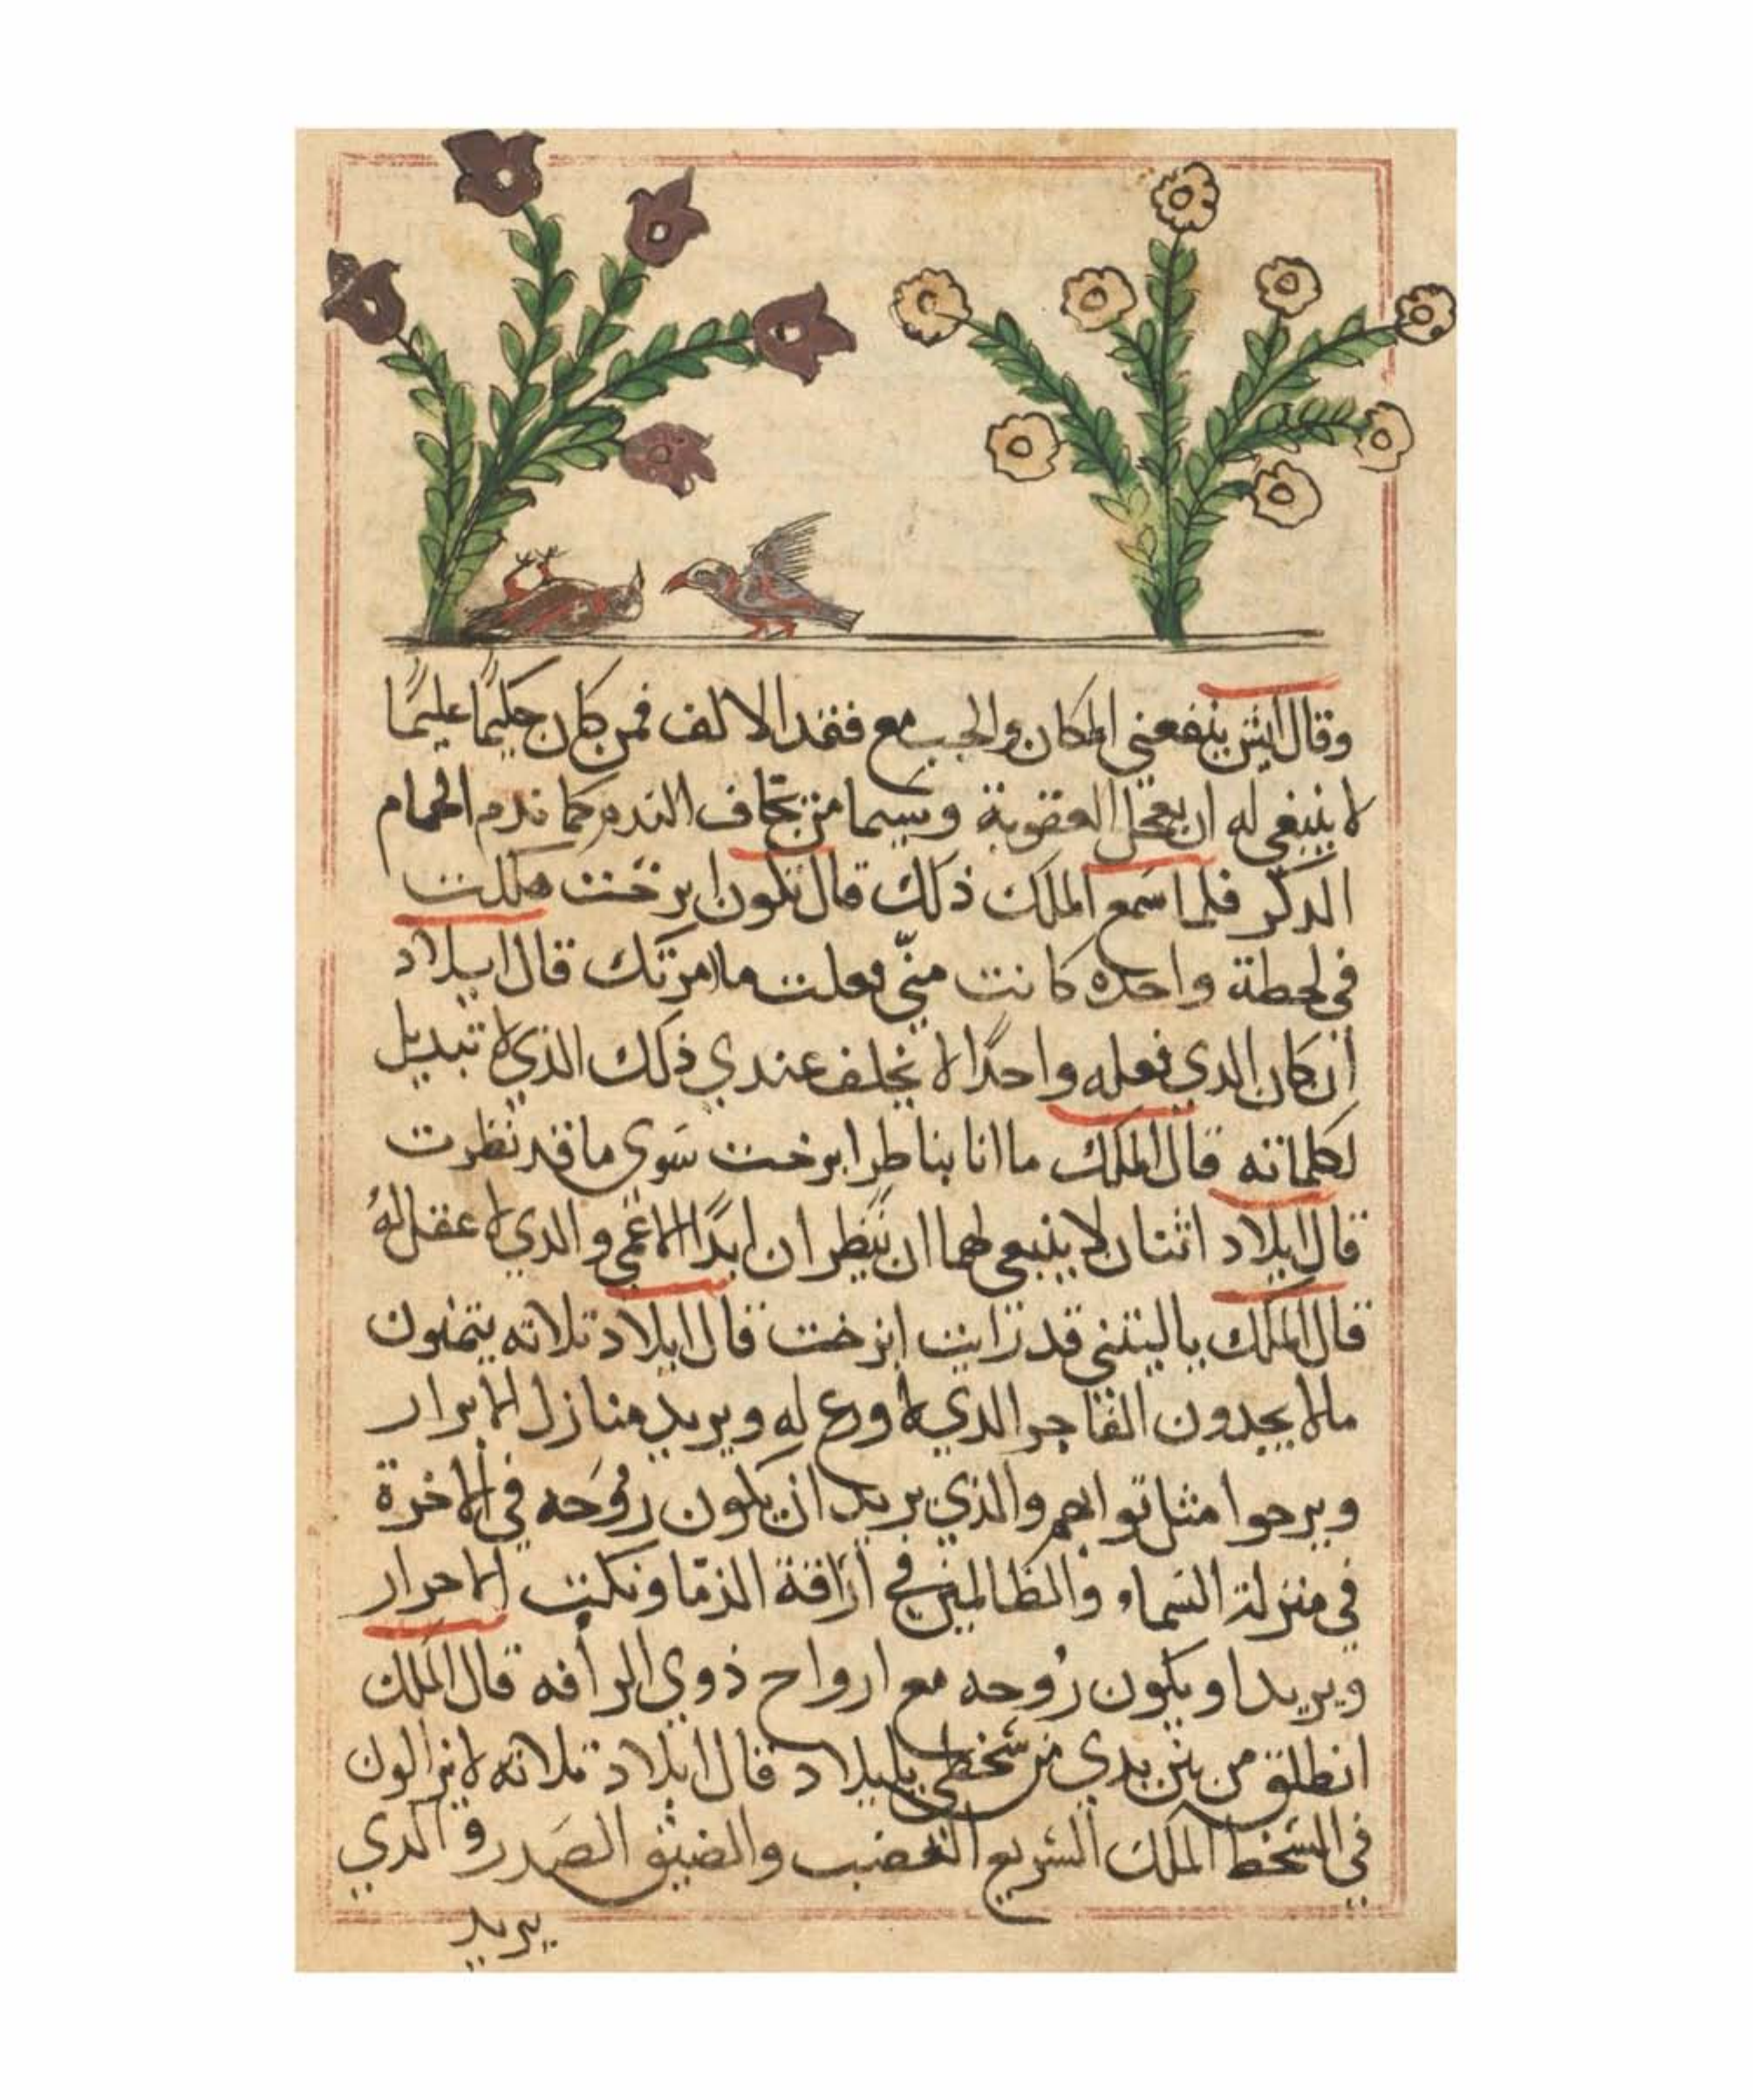 وقال ايش ينفعني المكان والحب مع فقد الالف فمن كان حكيمًا عليمًا
لا ينبغي له ان يعجل العقوبة وسيما من يخاف الندم كما ندم الحمام
الدكر فلما سمع الملك ذلك قال تكون ابرخت هلكت
في لحطة واحده كانت منّي فعلت ما امرتك قال ايبلاد
أن كان الدي فعله واحدًا لا يخلف عندي ذلك الذي لا تبديل
لكلماته قال الملك ما انا بناطر ابرخت سوى ما قد نظرت
قال ايلاد اثنان لا ينبغي لهما ان ينظران ابدًا الاعمى والدي لا عقل لهُ
قال الملك ياليتني قد رايت ابرخت قال ايلاد تلاته يتمنون
مالا يجدون الفاجر الدي لا ورع له ويريد منازل الابرار
ويرجوا مثل توابهم والذي يريد ان يكون رُوحه في الاخرة
في منزلة السماء والظالمين في أراقة الدمّا و الاحرار
ويريد او يكون رُوحه مع ارواح ذوي الرأفه قال الملك
انطلق من بين يدي من سخطي يايبلاد قال ايلاد تلاته لايزالون
في السخط الملك السريع الغضب والضيق الصَدر و الدي
يريد